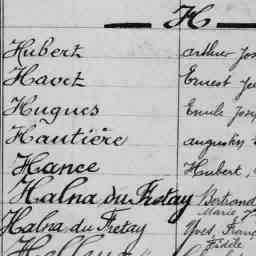 H
Hubert Arthur Jos
Havet Ernest Ju
Hugues Emile Josep
Hautière augustin
Hance Hubert,
Halna du Fretay Bertrand
Marie
Halna du Fretay Yves, Franç
Fidèle